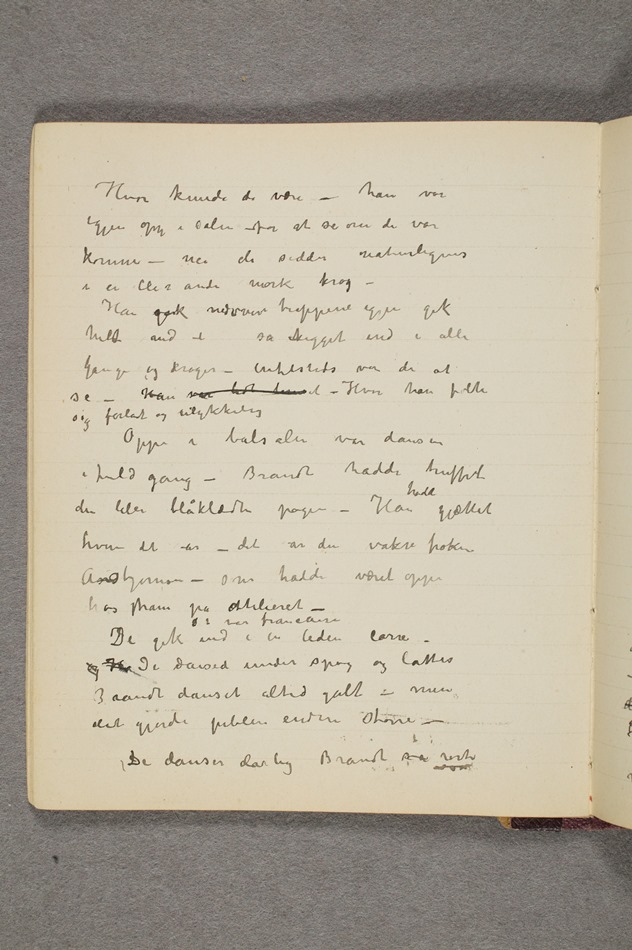 Hvor kunde de være – han var
igjen oppe i salen – for at se om de var
kommen – nei de sidder naturligvis
i en eller anden mørk krog –
Han gik nedover trappene igjen gik
helt ind – så kigget ind i alle
gange og kroger – intetsteds var de at
se – Han var – Hvor han følte
sig forlat og ulykkelig
Oppe i balsalen var dansen
i fuld gang – Brandt hadde truffet
den lille blåklædte pagen – Han havde gjættet
hvem det var – det var den vakre frøken
– som hadde været oppe
hos ham på atelieret –
Så var francaise
De gik ind i en liden carre –
og De dansed under spøg og latter
Brandt danset altid galt – men
det gjorde jubelen endnu større –
De danser dårlig Brandt sa